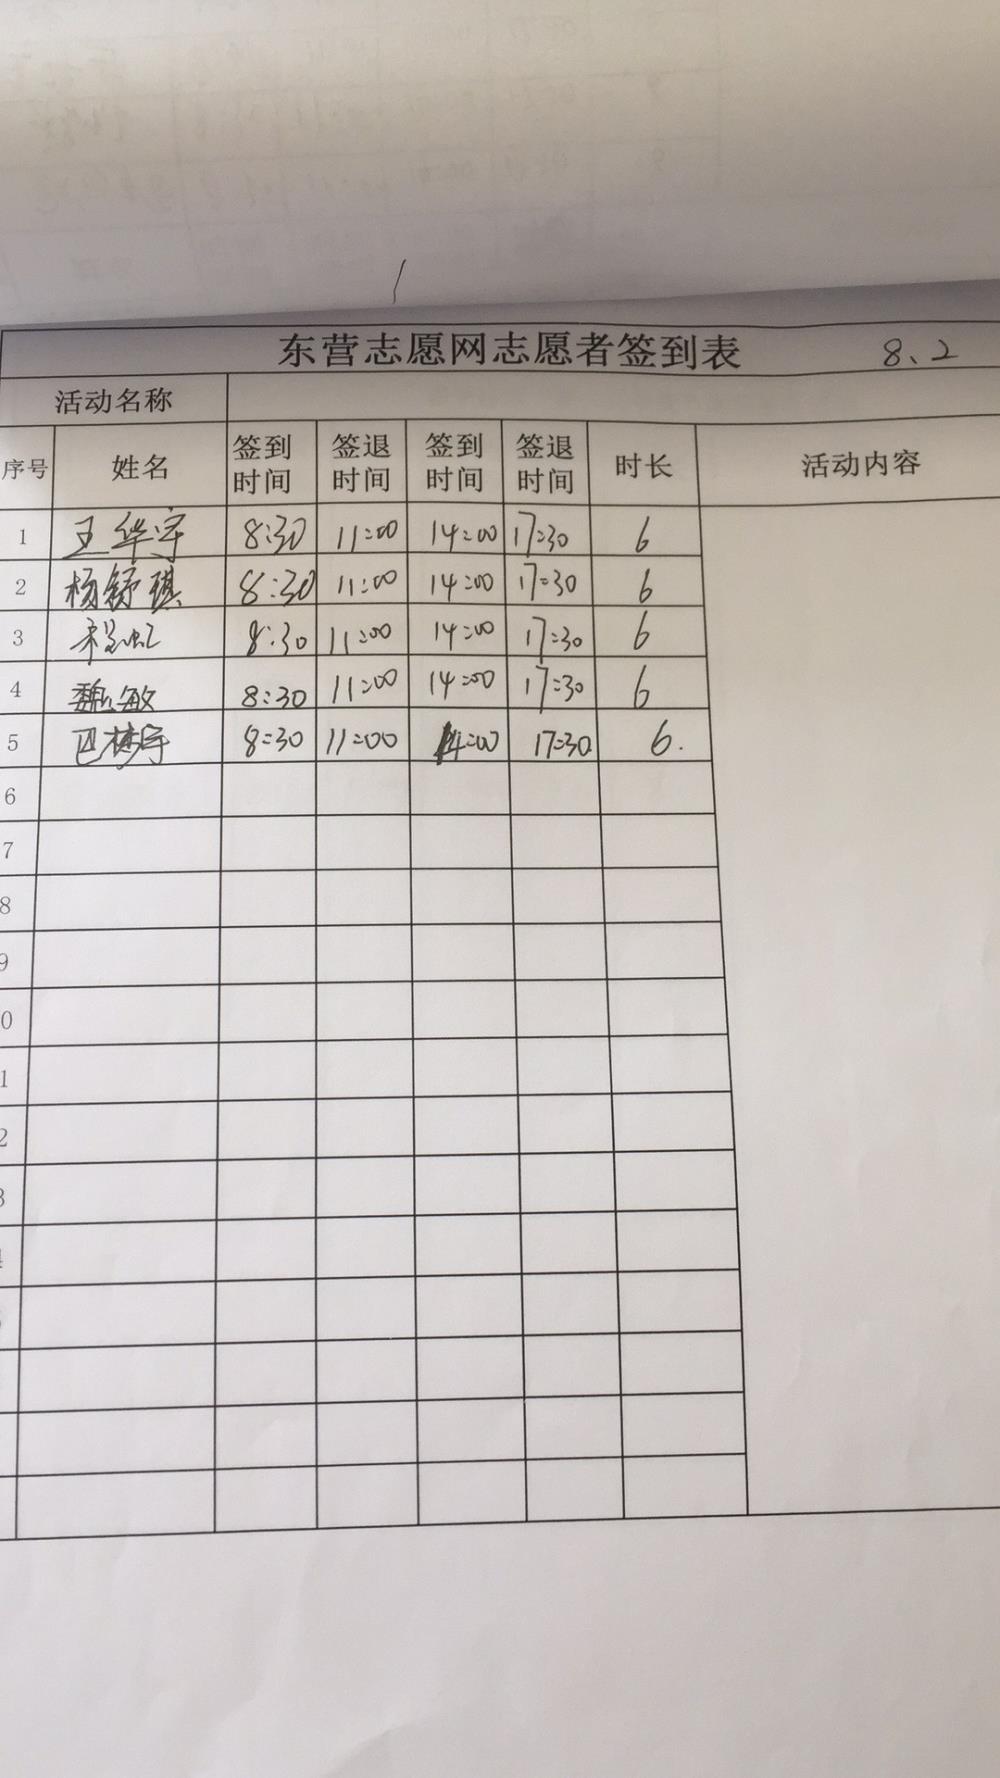 东营志愿网志愿者签到表 8、2
活动名称
序号 姓名 签到时间 签退时间 签到时间 签退时间 时长 活动内容
1 王华宇 8:30 11:00 14:00 17:30 6
2 杨舒琪 8:30 11:00 14:00 17:30 6
3 8:30 11:00 14:00 17:30 6
4 魏敏 8:30 11:00 14:00 17:30 6
5 巴梦宇 8:30 11:00 14:00 17:30 6.
6
7
8
9
0
1
2
3
4